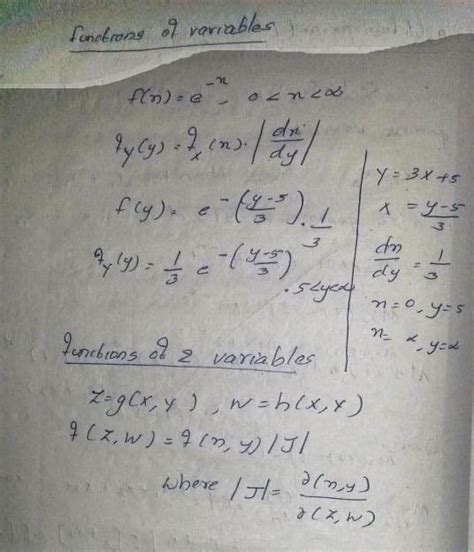 functions of variables
f(x) = e^{-x}, 0 < x < ∞
f_Y(y) = f_X(x) · |dx/dy|
f(y) = e^{-((y-5)/3)} · 1/3
f_Y(y) = 1/3 e^{-((y-5)/3)} . 5 < y < ∞
y = 3x + 5
x = (y-5)/3
dx/dy = 1/3
x = 0, y = 5
x = ∞, y = ∞
functions of 2 variables
Z = g(x, y), W = h(x, y)
f(Z, W) = f(x, y) |J|
where |J| = ∂(x, y)/∂(z, w)